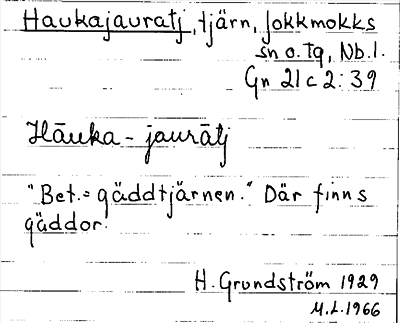 Haukajauratj, tjärn, Jokkmokks
sn o. tg, Nb. l.
Gn 21 c 2:39
Hāuka-jaurātj
"Bet.= gäddtjärnen." Där finns
gäddor.
H. Grundström 1929
M.L. 1966